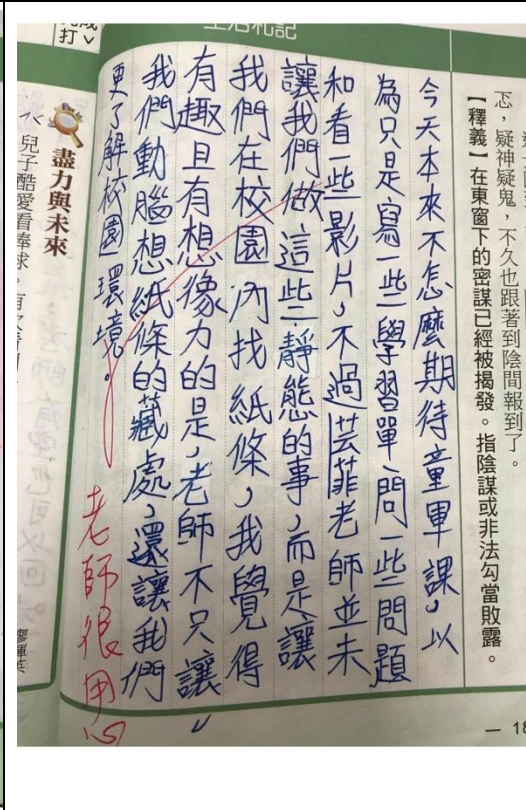 生活札記
忑，疑神疑鬼，不久也跟著到陰間報到了。
【釋義】在東窗下的密謀已經被揭發。指陰謀或非法勾當敗露。
今天本來不怎麼期待童軍課，以
為只是寫一些學習單、問一些問題
和看一些影片，不過芸菲老師並未
讓我們做這些靜態的事，而是讓
我們在校園內找紙條，我覺得
有趣且有想像力的是，老師不只讓
我們動腦想紙條的藏處，還讓我們
更了解校園環境。
老師很用心
盡力與未來
兒子酷愛看棒球。
打
— 18